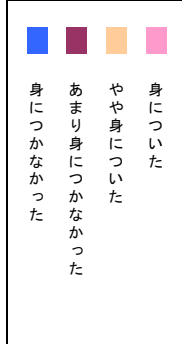 身についた
やや身についた
あまり身につかなかった
身につかなかった